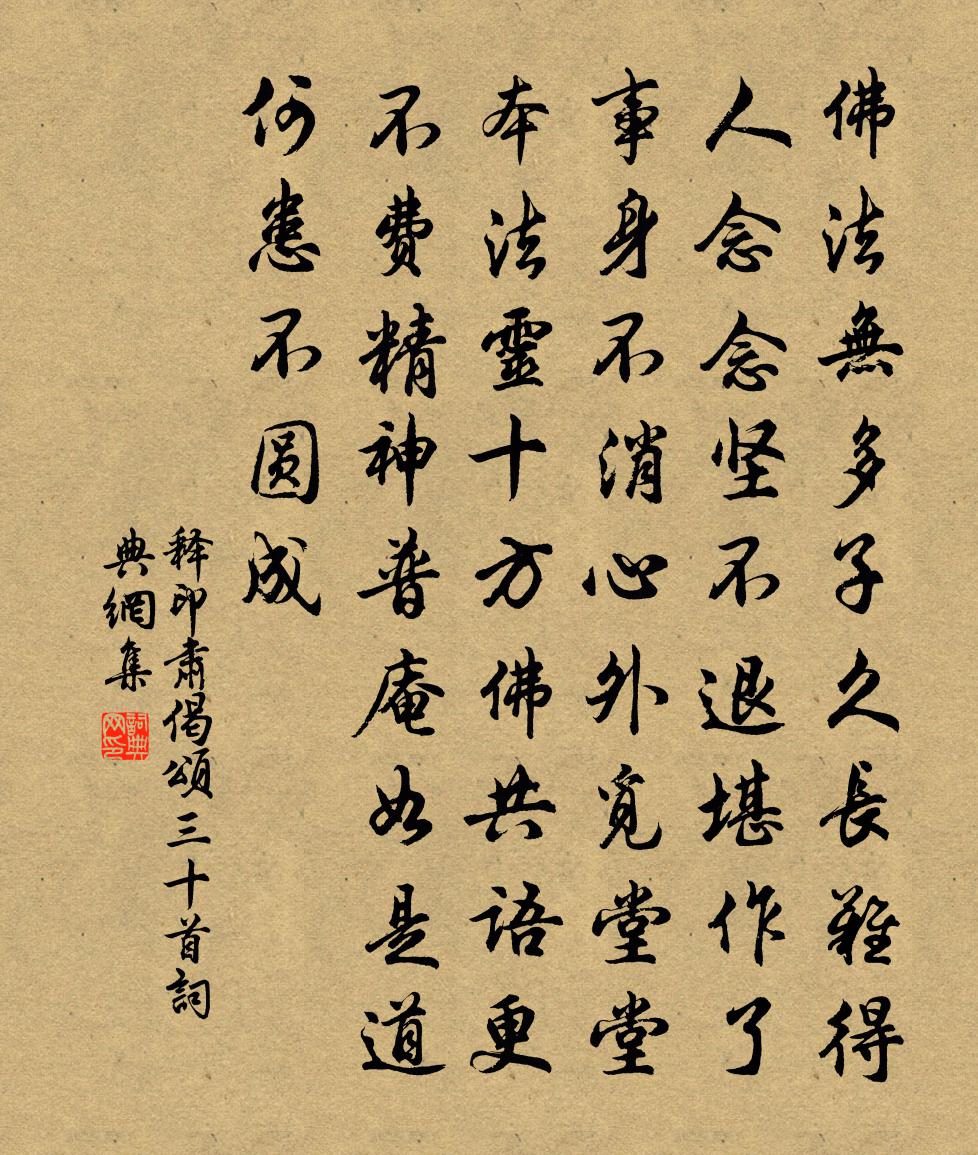 佛法無多子久長難得
人念念堅不退堪作了
事身不消心外覓堂堂
本法靈十方佛共語更
不费精神普庵如是道
何患不圆成
释印肃偈頌三十首詞
典網集
詞典网印